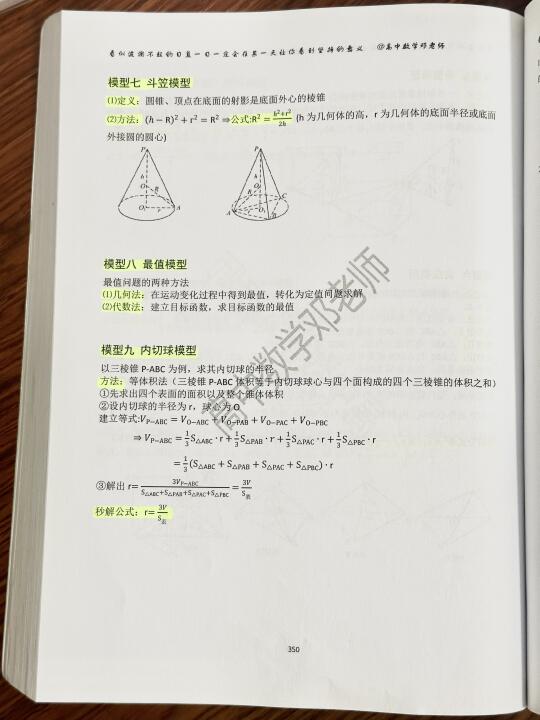 看似波澜不惊的日复一日一定会在某一天让你看到坚持的意义 @高中数学邓老师
模型七 斗笠模型
⑴定义：圆锥、顶点在底面的射影是底面外心的棱锥
⑵方法：(h − R)² + r² = R² ⇒公式:R² = \frac{h²+r²}{2h} (h 为几何体的高，r 为几何体的底面半径或底面
外接圆的圆心)
P
h
O
R
O₁
r
A
P
h
O
R
C
A
O₁
r
B
模型八 最值模型
最值问题的两种方法
⑴几何法：在运动变化过程中得到最值，转化为定值问题求解
⑵代数法：建立目标函数，求目标函数的最值
模型九 内切球模型
以三棱锥 P-ABC 为例，求其内切球的半径
方法：等体积法（三棱锥 P-ABC 体积等于内切球球心与四个面构成的四个三棱锥的体积之和）
①先求出四个表面的面积以及整个锥体体积
②设内切球的半径为 r，球心为 O
建立等式:V_{P−ABC} = V_{O−ABC} + V_{O−PAB} + V_{O−PAC} + V_{O−PBC}
⇒ V_{P−ABC} = \frac{1}{3}S_{△ABC} · r + \frac{1}{3}S_{△PAB} · r + \frac{1}{3}S_{△PAC} · r + \frac{1}{3}S_{△PBC} · r
= \frac{1}{3}(S_{△ABC} + S_{△PAB} + S_{△PAC} + S_{△PBC}) · r
③解出 r= \frac{3V_{P−ABC}}{S_{△ABC}+S_{△PAB}+S_{△PAC}+S_{△PBC}} = \frac{3V}{S_表}
秒解公式: r= \frac{3V}{S_表}
高中数学邓老师
350